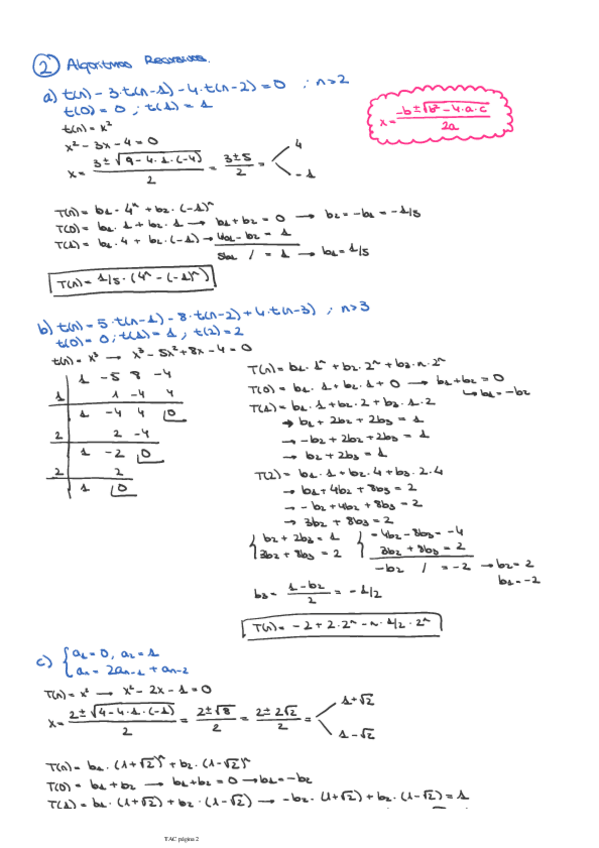 ② Algoritmos Recursivos.
a) t(n) - 3·t(n-1) - 4·t(n-2) = 0 ; n≥2
t(0) = 0 ; t(1) = 1
t(n) = x²
x² - 3x - 4 = 0
x = (3 ± √(9 - 4·1·(-4))) / 2 = (3 ± 5) / 2 = < 4 / -1
x = (-b ± √(b² - 4·a·c)) / 2a
T(n) = b1·4ⁿ + b2·(-1)ⁿ
T(0) = b1·1 + b2·1 → b1 + b2 = 0 → b2 = -b1 = -1/5
T(1) = b1·4 + b2·(-1) → 4b1 - b2 = 1
5b1 / = 1 → b1 = 1/5
T(n) = 1/5·(4ⁿ - (-1)ⁿ)
b) t(n) = 5·t(n-1) - 8·t(n-2) + 4·t(n-3) ; n≥3
t(0) = 0 ; t(1) = 1 ; t(2) = 2
t(n) = x³ → x³ - 5x² + 8x - 4 = 0
1 -5 8 -4
1 1 -4 4
1 -4 4 0
2 2 -4
1 -2 0
2 2
1 0
T(n) = b1·1ⁿ + b2·2ⁿ + b3·n·2ⁿ
T(0) = b1·1 + b2·1 + 0 → b1 + b2 = 0
↳ b1 = -b2
T(1) = b1·1 + b2·2 + b3·1·2
→ b1 + 2b2 + 2b3 = 1
→ -b2 + 2b2 + 2b3 = 1
→ b2 + 2b3 = 1
T(2) = b1·1 + b2·4 + b3·2·4
→ b1 + 4b2 + 8b3 = 2
→ -b2 + 4b2 + 8b3 = 2
→ 3b2 + 8b3 = 2
{ b2 + 2b3 = 1 { -4b2 - 8b3 = -4
{ 3b2 + 8b3 = 2 3b2 + 8b3 = 2
-b2 / = -2 → b2 = 2
b1 = -2
b3 = (1 - b2) / 2 = -1/2
T(n) = -2 + 2·2ⁿ - n·1/2·2ⁿ
c) { a1 = 0, a2 = 1
{ an = 2an-1 + an-2
T(n) = x² → x² - 2x - 1 = 0
x = (2 ± √(4 - 4·1·(-1))) / 2 = (2 ± √8) / 2 = (2 ± 2√2) / 2 = < 1+√2 / 1-√2
T(n) = b1·(1+√2)ⁿ + b2·(1-√2)ⁿ
T(0) = b1 + b2 → b1 + b2 = 0 → b1 = -b2
T(1) = b1·(1+√2) + b2·(1-√2) → -b2·(1+√2) + b2·(1-√2) = 1
TAC página 2